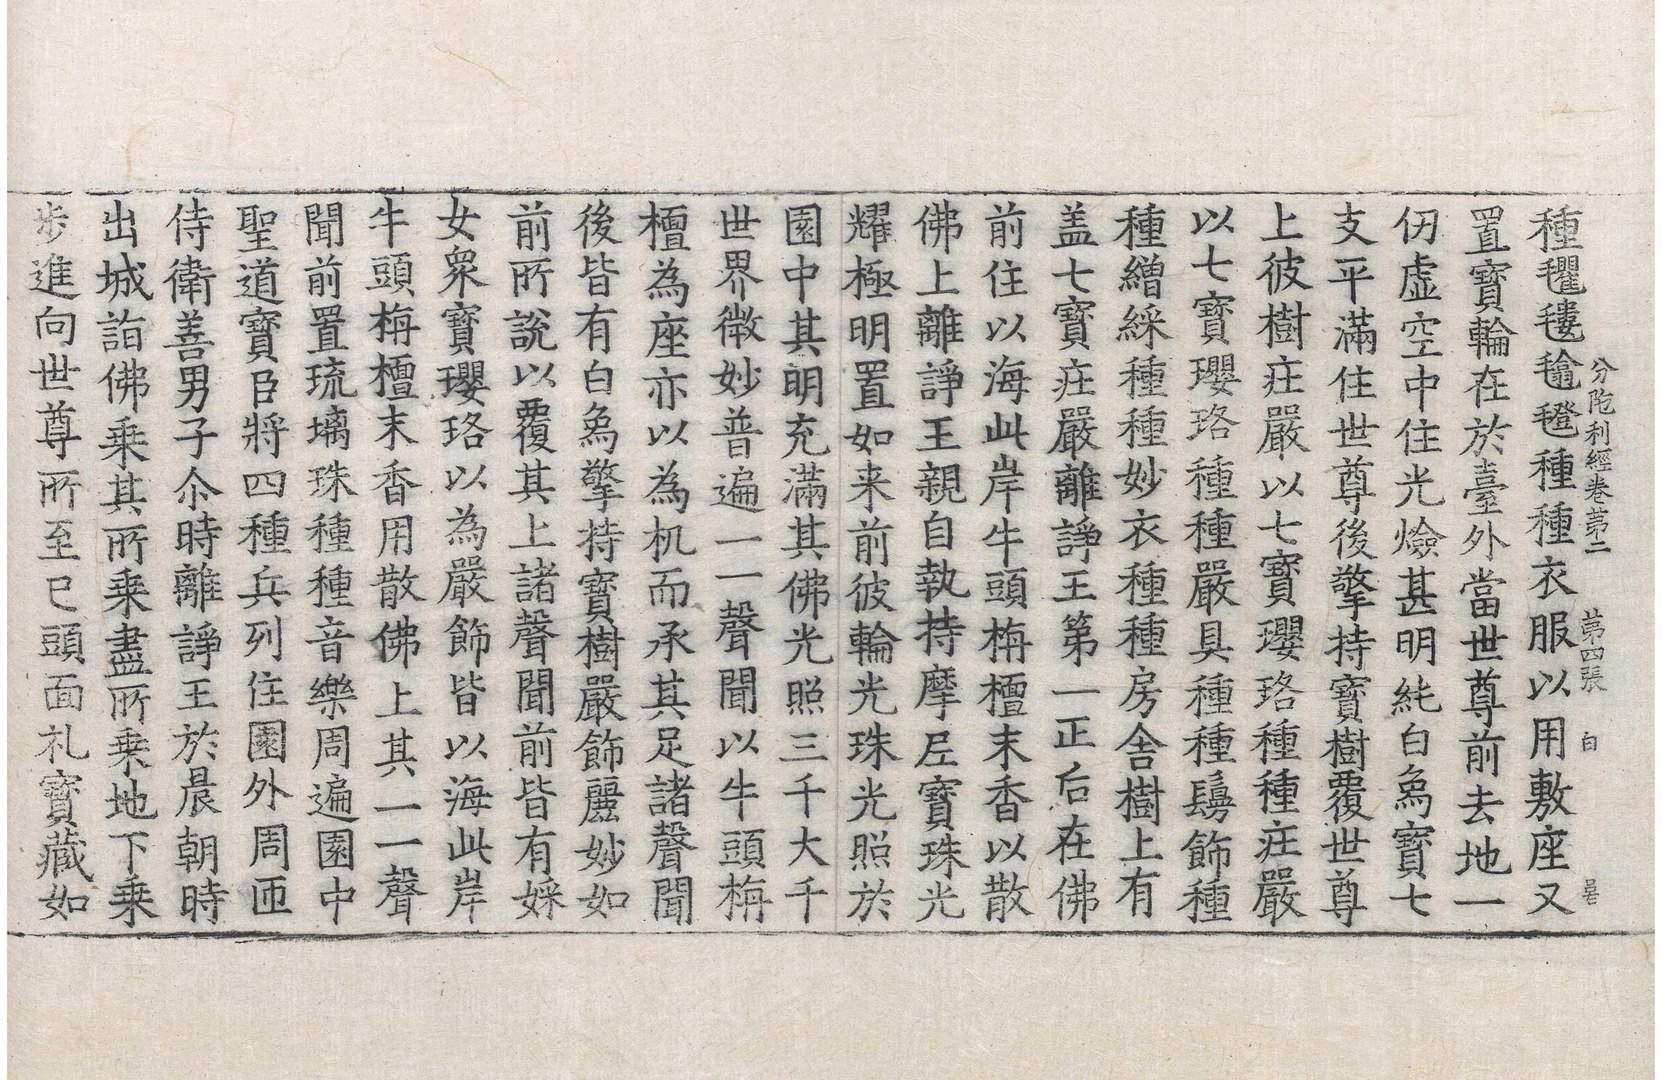 分陁利經卷苐二　第四張　白
種氍氀毾㲪種種衣服以用敷座又
置寶輪在於臺外當世尊前去地一
仞虛空中住光燄甚明純白烏寶七
支平滿住世尊後擎持寶樹覆世尊
上彼樹莊嚴以七寶瓔珞種種莊嚴
以七寶瓔珞種種嚴具種種鬘飾種
種繒綵種種妙衣種種房舍樹上有
盖七寶莊嚴離諍王第一正后在佛
前住以海此岸牛頭栴檀末香以散
佛上離諍王親自執持摩尼寶珠光
耀極明置如来前彼輪光珠光照於
園中其明充滿其佛光照三千大千
世界微妙普遍一一聲聞以牛頭栴
檀為座亦以為机而承其足諸聲聞
後皆有白烏擎持寶樹嚴飾麗妙如
前所說以覆其上諸聲聞前皆有婇
女衆寶瓔珞以為嚴飾皆以海此岸
牛頭栴檀末香用散佛上其一一聲
聞前置琉璃珠種種音樂周遍園中
聖道寶臣將四種兵列住園外周匝
侍衛善男子尒時離諍王於晨朝時
出城詣佛乘其所乘盡所乘地下乘
步進向世尊所至已頭面礼寶藏如